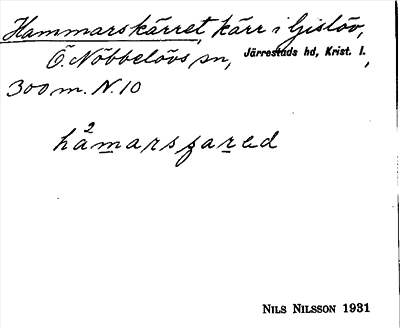 Hammarskärret, kärr i Gislöv,
Ö. Nöbbelövs sn, Järrestads hd, Krist. l.,
300 m. N. 10
NILS NILSSON 1931